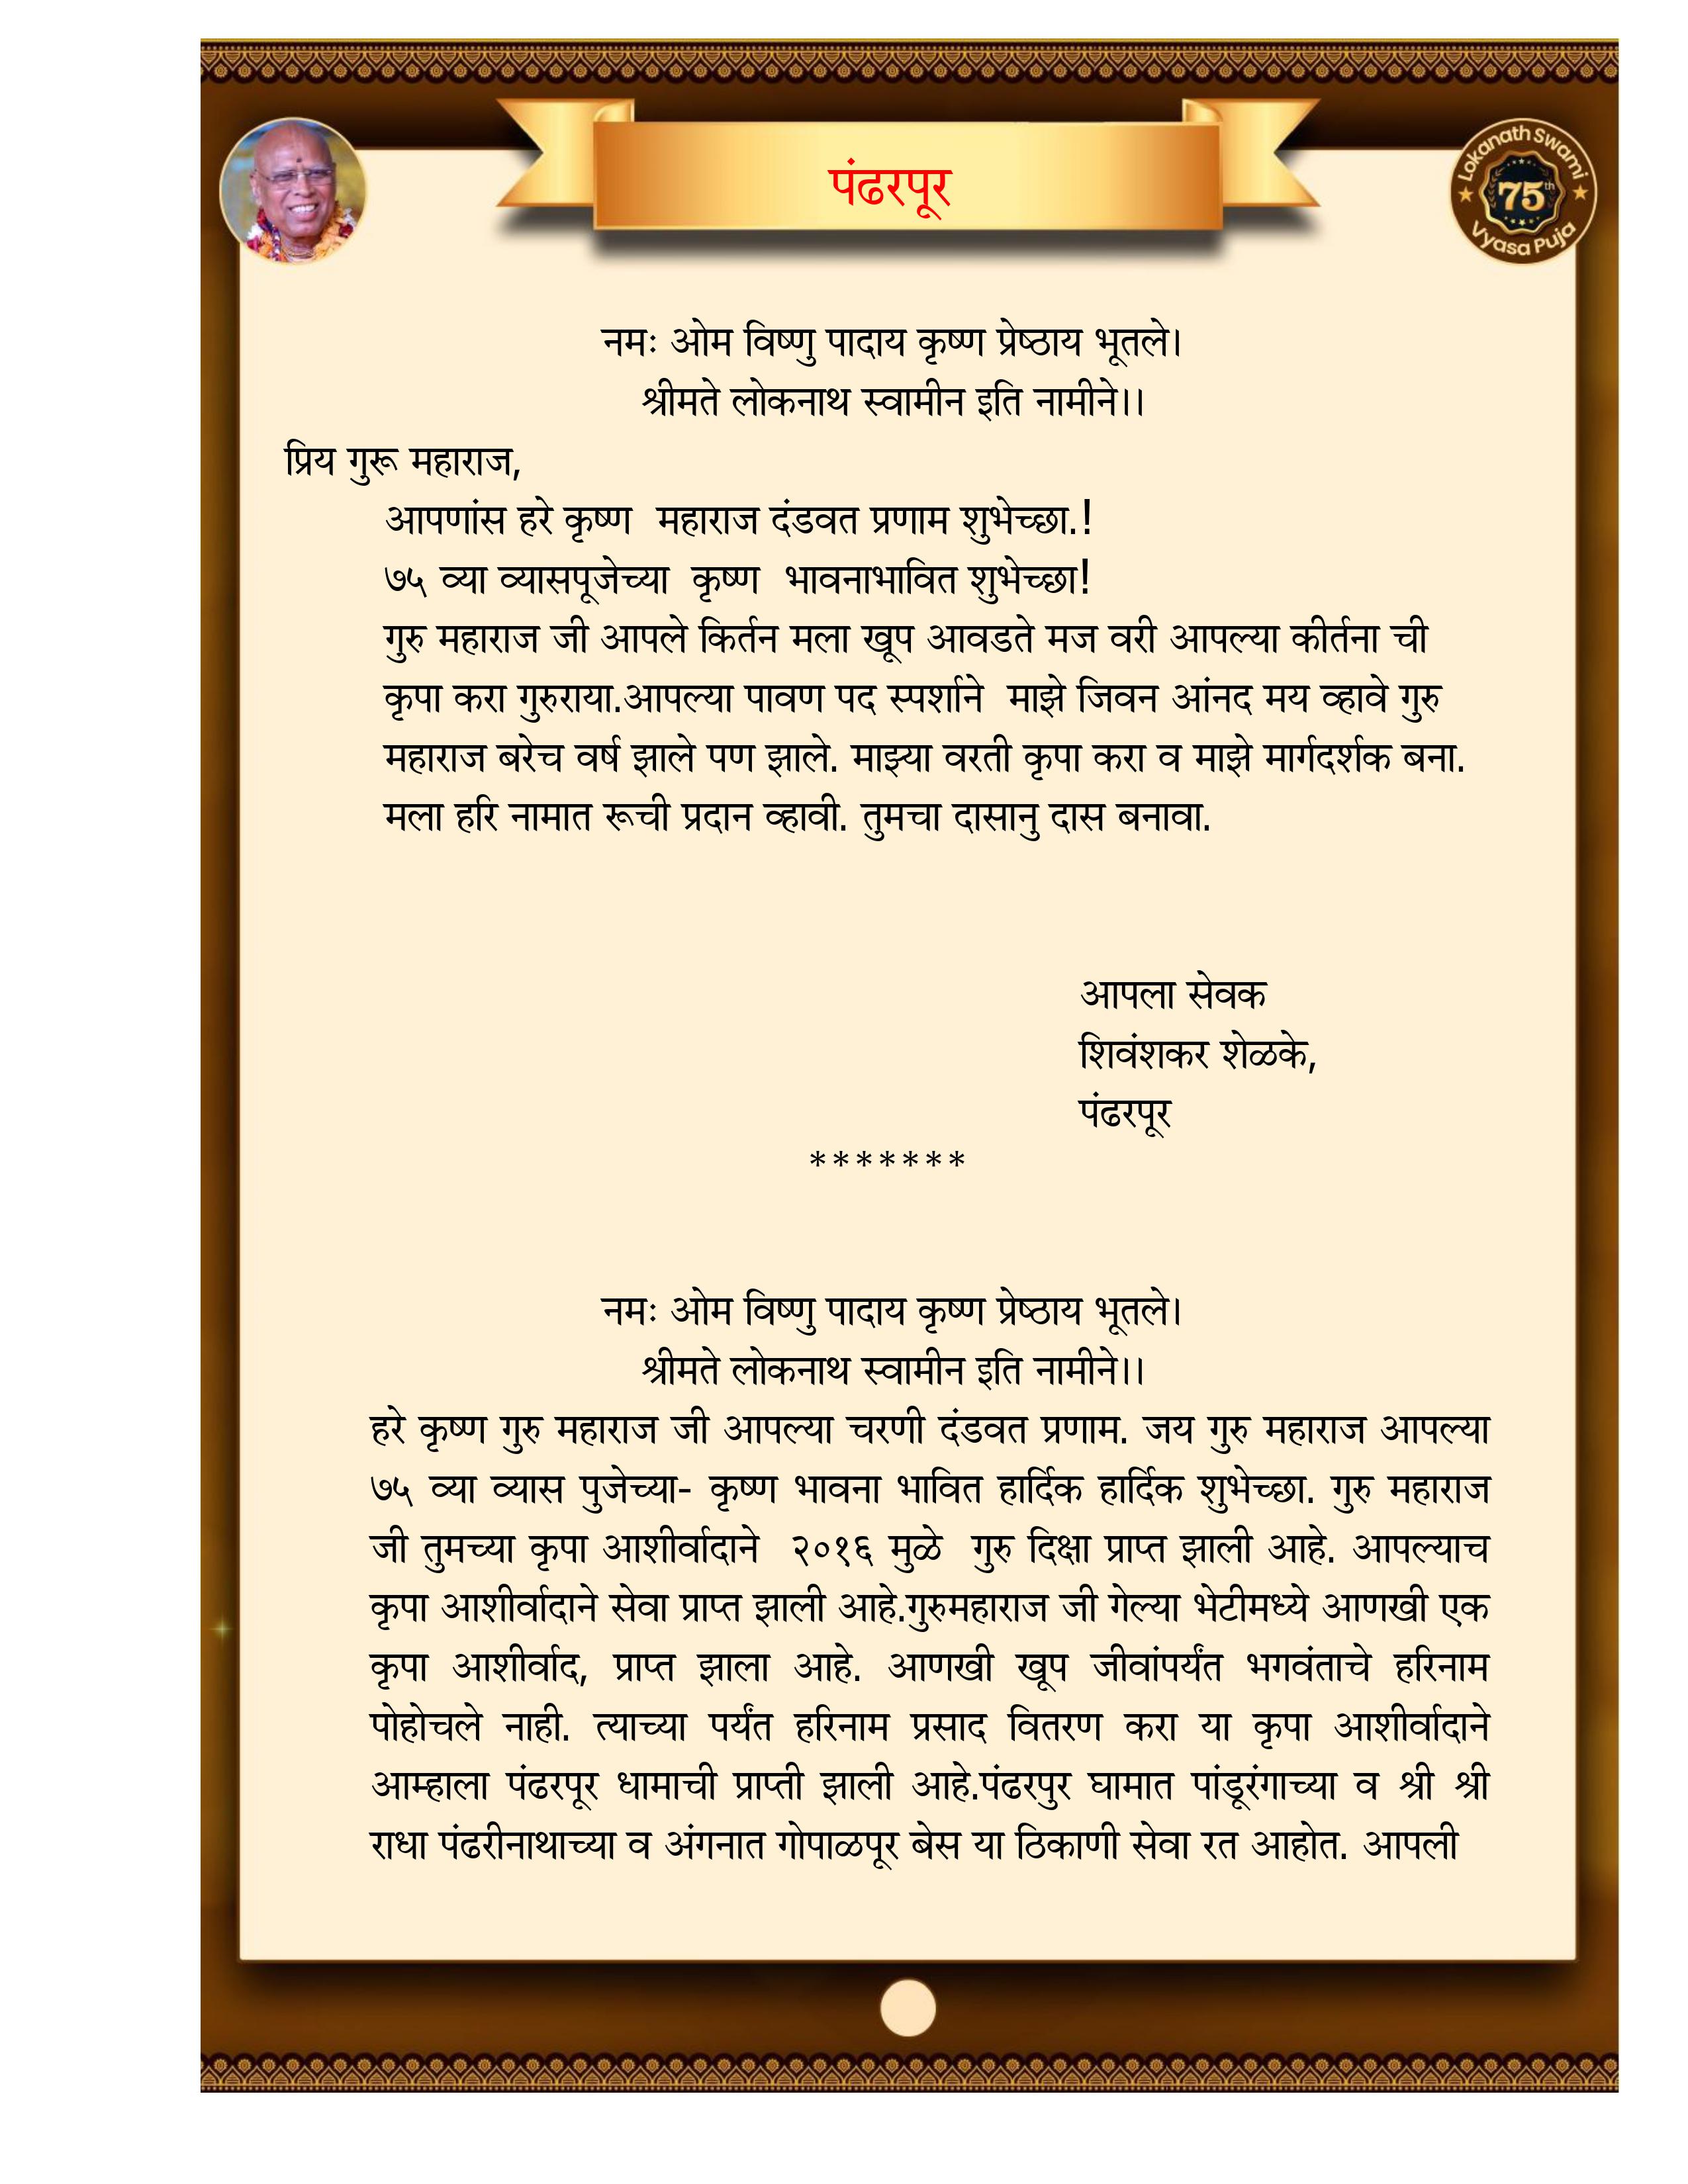 पंढरपूर
Lokanath Swami
75th
Vyasa Puja
नमः ओम विष्णु पादाय कृष्ण प्रेष्ठाय भूतले।
श्रीमते लोकनाथ स्वामीन इति नामीने।।
प्रिय गुरू महाराज,
आपणांस हरे कृष्ण  महाराज दंडवत प्रणाम शुभेच्छा.!
७५ व्या व्यासपूजेच्या  कृष्ण  भावनाभावित शुभेच्छा!
गुरु महाराज जी आपले किर्तन मला खूप आवडते मज वरी आपल्या कीर्तना ची
कृपा करा गुरुराया.आपल्या पावण पद स्पर्शाने  माझे जिवन आंनद मय व्हावे गुरु
महाराज बरेच वर्ष झाले पण झाले. माझ्या वरती कृपा करा व माझे मार्गदर्शक बना.
मला हरि नामात रूची प्रदान व्हावी. तुमचा दासानु दास बनावा.
आपला सेवक
शिवंशकर शेळके,
पंढरपूर
*******
नमः ओम विष्णु पादाय कृष्ण प्रेष्ठाय भूतले।
श्रीमते लोकनाथ स्वामीन इति नामीने।।
हरे कृष्ण गुरु महाराज जी आपल्या चरणी दंडवत प्रणाम. जय गुरु महाराज आपल्या
७५ व्या व्यास पुजेच्या- कृष्ण भावना भावित हार्दिक हार्दिक शुभेच्छा. गुरु महाराज
जी तुमच्या कृपा आशीर्वादाने  २०१६ मुळे  गुरु दिक्षा प्राप्त झाली आहे. आपल्याच
कृपा आशीर्वादाने सेवा प्राप्त झाली आहे.गुरुमहाराज जी गेल्या भेटीमध्ये आणखी एक
कृपा आशीर्वाद, प्राप्त झाला आहे. आणखी खूप जीवांपर्यंत भगवंताचे हरिनाम
पोहोचले नाही. त्याच्या पर्यंत हरिनाम प्रसाद वितरण करा या कृपा आशीर्वादाने
आम्हाला पंढरपूर धामाची प्राप्ती झाली आहे.पंढरपुर घामात पांडूरंगाच्या व श्री श्री
राधा पंढरीनाथाच्या व अंगनात गोपाळपूर बेस या ठिकाणी सेवा रत आहोत. आपली